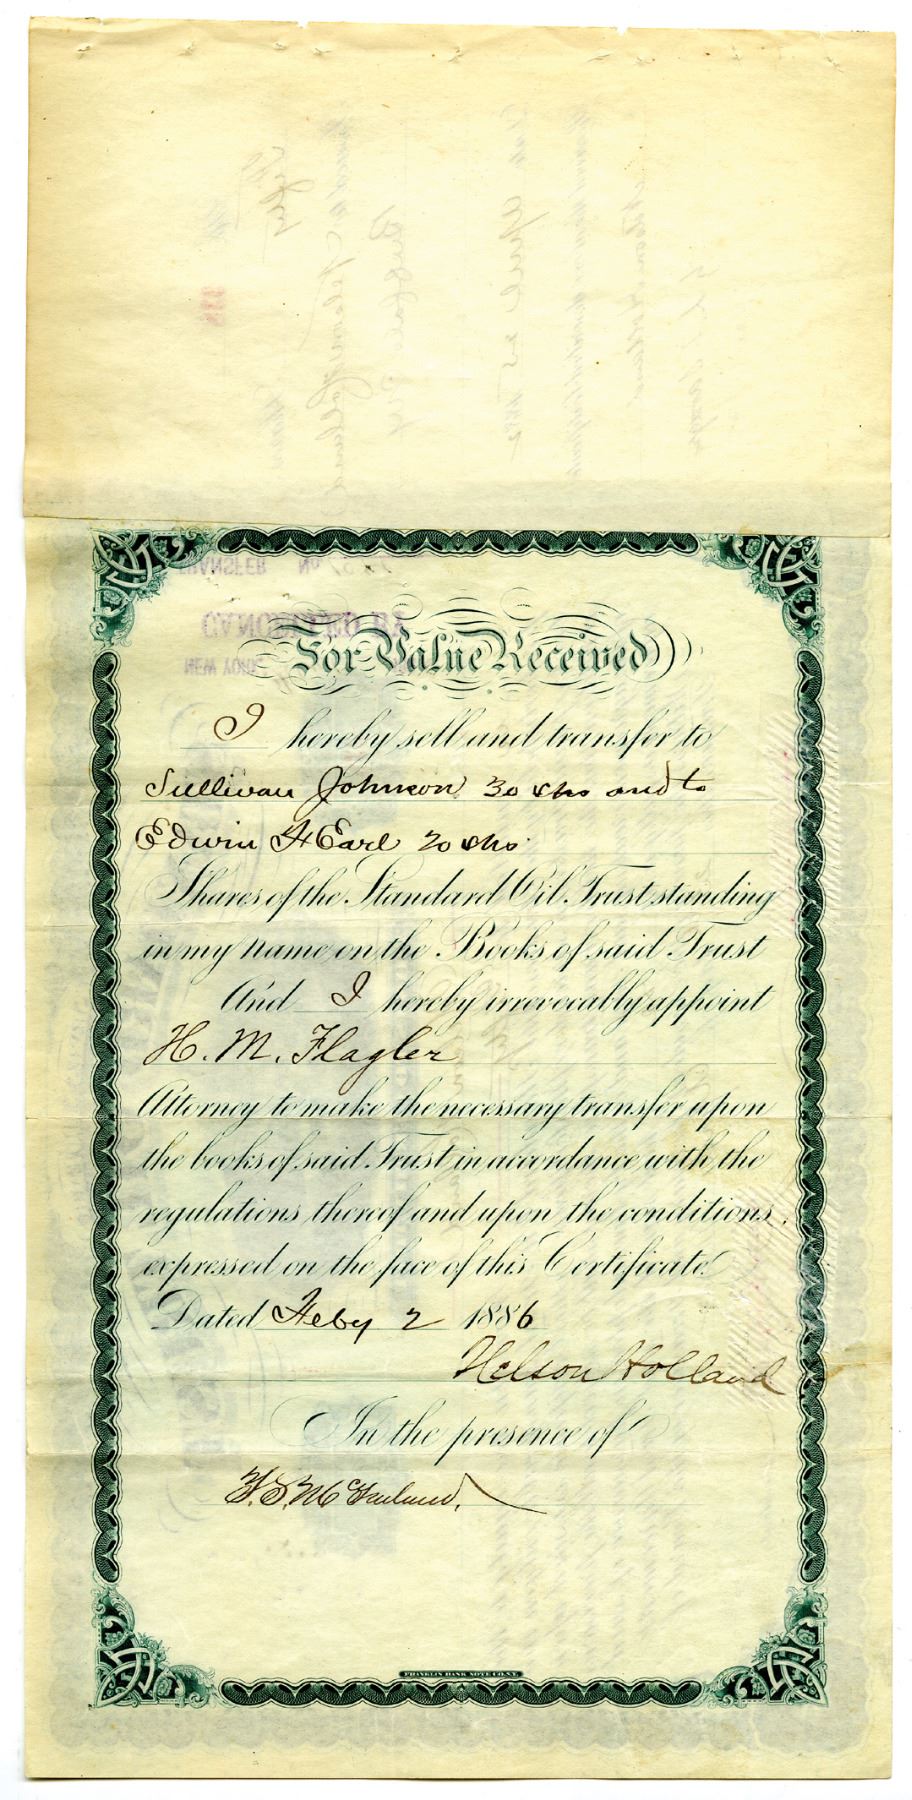 For Value Received
I hereby sell and transfer to
Sullivan Johnson 30 shs and to
Edwin H Earl 20 shs
Shares of the Standard Oil Trust standing
in my name on the Books of said Trust
And I hereby irrevocably appoint
H. M. Flagler
Attorney to make the necessary transfer upon
the books of said Trust in accordance with the
regulations thereof and upon the conditions
expressed on the face of this Certificate.
Dated Feby 2 1886
Nelson Holland
In the presence of
FRANKLIN BANK NOTE CO. N.Y.